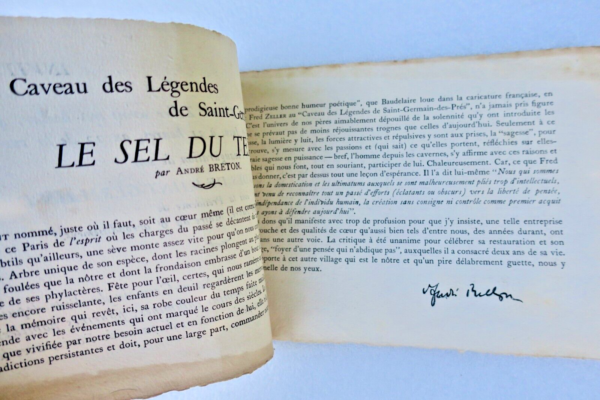 Caveau des Légendes
de Saint-Ge
LE SEL DU TE
par ANDRÉ BRETON.
nommé, juste où il faut, soit au cœur même (il est
ce Paris de l'esprit où les charges du passé se décantent
btils qu'ailleurs, une sève monte assez vite pour qu'on
. Arbre unique de son espèce, dont les racines plongent
foulées que la nôtre et dont la frondaison embrasse d'un
e de ses phylactères. Fête pour l'œil, certes, qui nous
es encore ruisselante, les enfants en deuil regardèrent les
la mémoire qui revêt, ici, sa robe couleur du temps
nde avec les événements qui ont marqué le cours des siècles
que vivifiée par notre besoin actuel et en fonction de lui,
adictions persistantes et doit, pour une large part, commander
prodigieuse bonne humeur poétique", que Baudelaire loue dans la caricature française, en
Fred ZELLER au "Caveau des Légendes de Saint-Germain-des-Prés", n'a jamais pris figure
C'est l'univers de nos pères aimablement dépouillé de la solennité qu'y ont introduite les
se prévaut pas de moins réjouissantes trognes que celles d'aujourd'hui. Seulement à ce
e, la lumière y luit, les forces attractives et répulsives y sont aux prises, la "sagesse", pour
trouve, s'y mesure avec les passions et (qui sait) ce qu'elles portent, réfléchies sur elles-
sagesse en puissance — bref, l'homme depuis les cavernes, s'y affirme avec ces raisons et
qui nous font, tout en souriant, participer de lui. Chaleureusement. Car, ce que Fred
donner, c'est par dessus tout une leçon d'espérance. Il l'a dit lui-même "Nous qui sommes
la domestication et les ultimatums auxquels se sont malheureusement pliés trop d'intellectuels,
venu de reconnaître tout un passé d'efforts (éclatants ou obscurs) vers la liberté de pensée,
indépendance de l'individu humain, la création sans consigne ni contrôle comme premier acquit
ayons à défendre aujourd'hui".
dons qu'il manifeste avec trop de profusion pour que j'y insiste, une telle entreprise
touche et des qualités de cœur qu'aussi bien tels d'entre nous, des années durant, ont
ans une autre voie. La critique à été unanime pour célébrer sa restauration et son
"foyer d'une pensée qui n'abdique pas", auxquelles il a consacré deux ans de sa vie.
porte à cet autre village qui est le nôtre et qu'un pire délabrement guette, nous y
elle de nos yeux.
André Breton